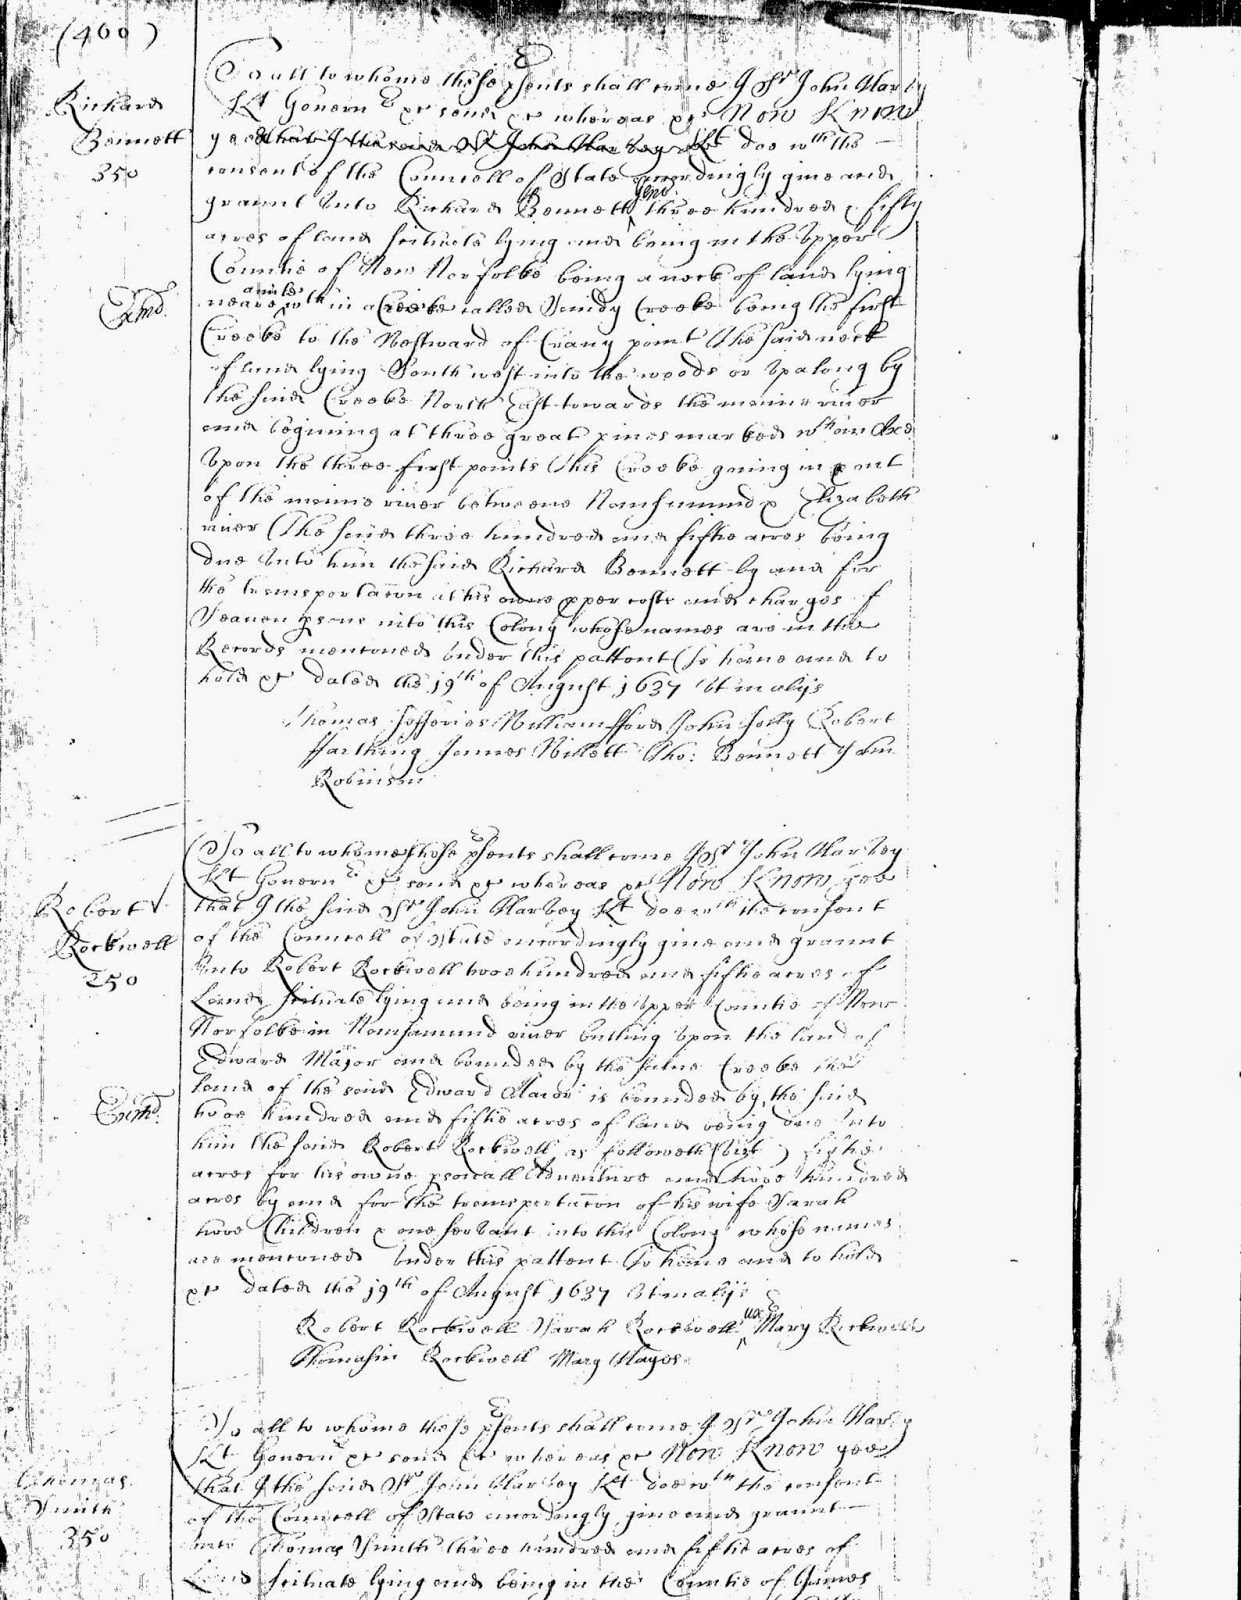 (460)
Richard
Bennett
350
To all to whome these psents shall come I Sr John Harvey
Kt Govern &c send &c whereas &c Now Know
yee that I the said Sr John Harvey Kt doe wth the
consent of the Councell of State accordingly give and
graunt unto Richard Bennett gent three hundred & fifty
acres of land scituate lying and being in the upper
Countie of New Norfolke being a neck of land lying
neare a mile wth in a Creeke called Creeke being the first
Creeke to the Westward of Crany point the said neck
of land lying South west into the woods or up along by
the said Creeke North East towards the maine river
and begining at three great pines marked wth an Axe
upon the three first points this Creeke going in
of the maine river betweene Nansumund & Elizabeth
river The said three hundred and fiftie acres being
due unto him the said Richard Bennett by and for
the transportacon at his owne pper costs and charges of
Seaven psons into this Colony whose names are in the
Records mentoned under this pattent To have and to
hold &c dated the 19th of August 1637 ut in alijs
Thomas Jefferies William fford John Jolly Robert
ffarthing James Willett Tho: Bennett John
Robinson
Exmd.
Robert
Rockwell
250
To all to whome these psents shall come I Sr John Harvey
Kt Govern &c send &c whereas &c Now Know yee
that I the said Sr John Harvey Kt doe wth the consent
of the Councell of State accordingly give and graunt
unto Robert Rockwell twoe hundred and fiftie acres of
Land scituate lying and being in the upper Countie of New
Norfolke in Nansamund river butting upon the land of
Edward Major and bounded by the same Creeke the
land of the said Edward Maior is bounded by, the said
twoe hundred and fiftie acres of land being due unto
him the said Robert Rockwell as followeth (vizt) fiftie
acres for his owne psonall Adventure and twoe hundred
acres by and for the transportacon of his wife Sarah
twoe Children & one servant into this Colony whose names
are mentoned under this pattent To have and to hold
&c dated the 19th of August 1637 ut in alijs
Robert Rockwell Sarah Rockwell ux Mary Rockwell
Thomasin Rockwell Mary Hayes
Exmd.
Thomas
Smith
350
To all to whome these psents shall come I Sr John Harvey
Kt Govern &c send &c whereas &c Now Know yee
that I the said Sr John Harvey Kt doe wth the consent
of the Councell of State accordingly give and graunt
unto Thomas Smith three hundred and fiftie acres of
Land scituate lying and being in the Countie of James